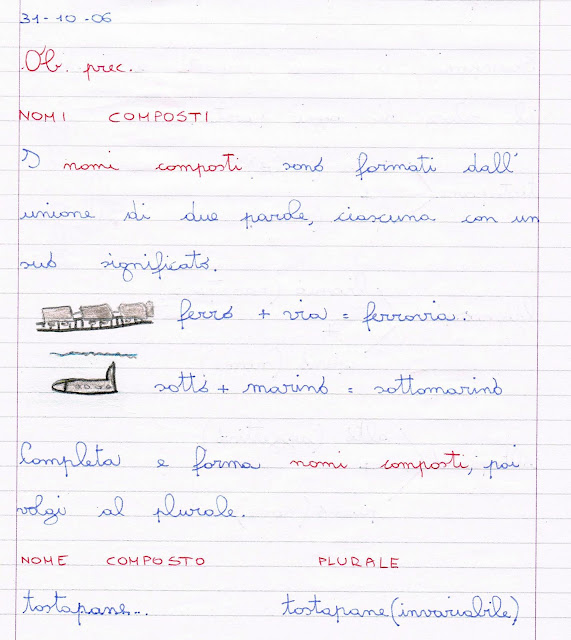 31-10-06
Ob. prec.
NOMI COMPOSTI
I nomi composti sono formati dall'
unione di due parole, ciascuna con un
suo significato.
ferro + via = ferrovia.
sotto + marino = sottomarino
Completa e forma nomi composti, poi
volgi al plurale.
NOME COMPOSTO PLURALE
tostapane... tostapane (invariabile)